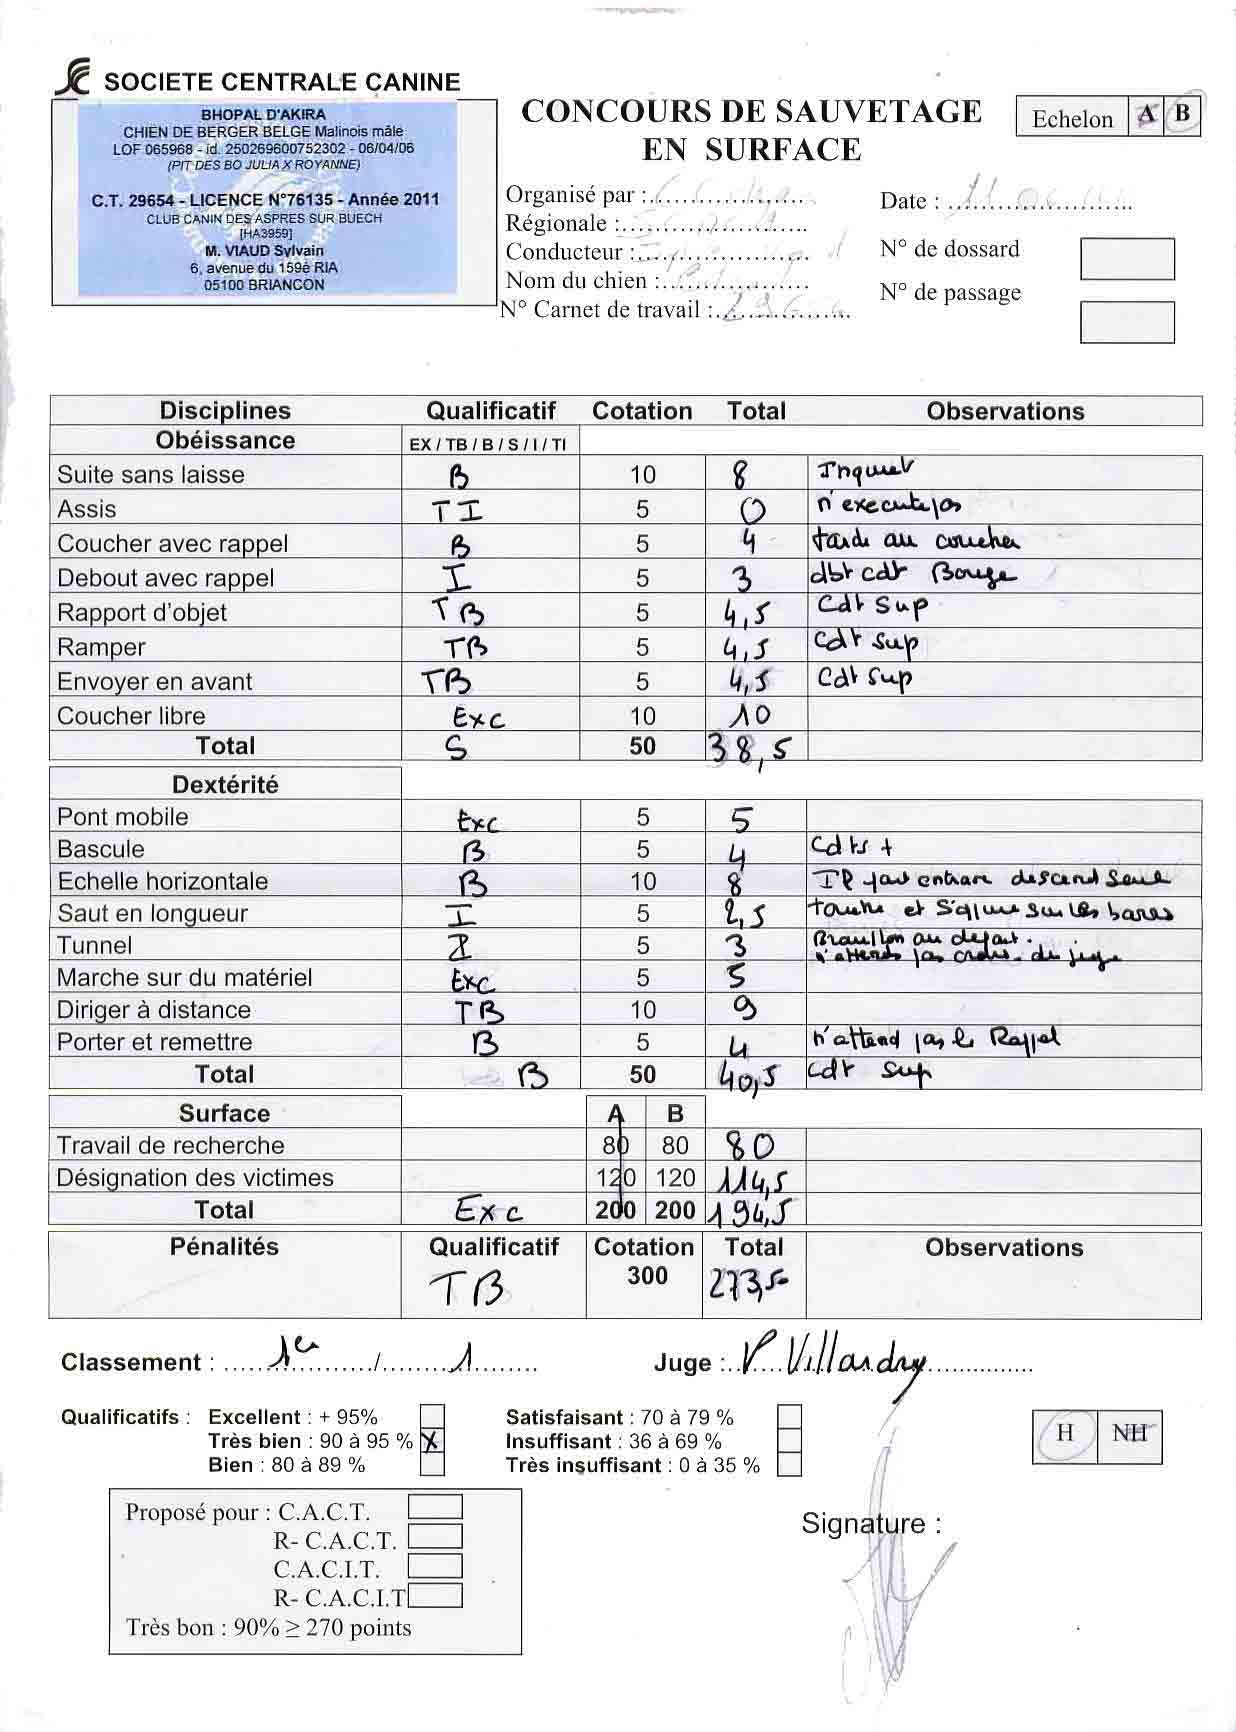 SOCIETE CENTRALE CANINE
BHOPAL D'AKIRA
CHIEN DE BERGER BELGE Malinois mâle
LOF 065968 - id. 250269600752302 - 06/04/06
(PIT DES BO JULIA X ROYANNE)
C.T. 29654 - LICENCE N°76135 - Année 2011
CLUB CANIN DES ASPRES SUR BUECH
[HA3959]
M. VIAUD Sylvain
6, avenue du 159è RIA
05100 BRIANCON
CONCOURS DE SAUVETAGE
EN SURFACE
Echelon A B
Organisé par :
Régionale :
Conducteur :
Nom du chien :
N° Carnet de travail :
Date :
N° de dossard
N° de passage
Disciplines Qualificatif Cotation Total Observations
Obéissance EX / TB / B / S / I / TI
Suite sans laisse B 10 8 Inquiet
Assis TI 5 0 n'execute pas
Coucher avec rappel B 5 4 tarde au coucher
Debout avec rappel I 5 3 dbt cdt Bouge
Rapport d'objet TB 5 4,5 Cdt Sup
Ramper TB 5 4,5 Cdt Sup
Envoyer en avant TB 5 4,5 Cdt Sup
Coucher libre Exc 10 10
Total S 50 38,5
Dextérité
Pont mobile Exc 5 5
Bascule B 5 4 Cdts +
Echelle horizontale B 10 8 descend seul
Saut en longueur I 5 2,5 touche et sur les barres
Tunnel I 5 3 Brouillon au départ.
n'attends pas du juge
Marche sur du matériel Exc 5 5
Diriger à distance TB 10 9
Porter et remettre B 5 4 n'attend pas le Rappel
Total B 50 40,5 cdt sup
Surface A B
Travail de recherche 80 80 80
Désignation des victimes 120 120 114,5
Total Exc 200 200 194,5
Pénalités Qualificatif Cotation Total Observations
TB 300 273,50
Classement : 1er / 1 Juge : P Villardry
Qualificatifs : Excellent : + 95% Satisfaisant : 70 à 79 %
Très bien : 90 à 95 % X Insuffisant : 36 à 69 %
Bien : 80 à 89 % Très insuffisant : 0 à 35 %
H NH
Proposé pour : C.A.C.T.
R- C.A.C.T.
C.A.C.I.T.
R- C.A.C.I.T
Très bon : 90% ≥ 270 points
Signature :